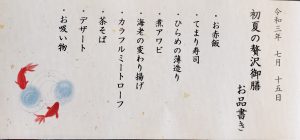 令和三年 七月 十五日
初夏の贅沢御膳
お品書き
・お赤飯
・てまり寿司
・ひらめの薄造り
・煮アワビ
・海老の変わり揚げ
・カラフルミートローフ
・茶そば
・デザート
・お吸い物